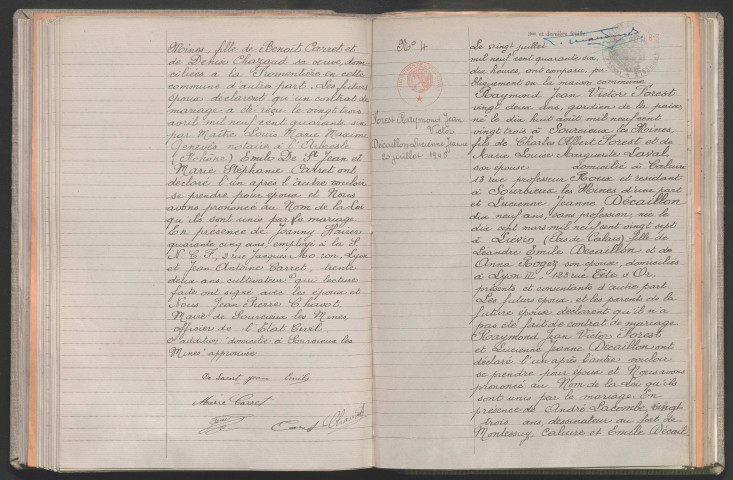 Mines, fille de Benoit Carret et
de Denise Chazaud sa veuve, domi
ciliées à la Fromentière en cette
commune d'autre part. Les futurs
époux déclarent qu'un contrat de
mariage a été reçu le vingt trois
avril mil neuf cent quarante six
par Maître Louis Marie Maxime
Genevès notaire à l'Arbresle
(Rhône). Emile De St Jean et
Marie Stéphanie Carret ont
déclaré l'un après l'autre vouloir
se prendre pour époux et Nous
avons prononcé au Nom de la Loi
qu'ils sont unis par le mariage.
En présence de Joanny
quarante cinq ans, employé à la S.
N. C. F., 2 rue Jacques Lyon
et Jean Antoine Carret, trente
deux ans, cultivateur qui lecture
faite ont signé avec les époux et
Nous Jean Pierre Chavot
Maire de Sourcieux les Mines
officier de l'Etat Civil.
addition: domiciliée à Sourcieux les
Mines approuvée
De Saint Jean Emile
Carret
Carret Chavot
N° 4
Forest Raymond Jean
Victor
Décaillon Lucienne Jeanne
20 juillet 1946
2me et dernier feuillet
Le vingt juillet
mil neuf cent quarante six,
dix heures, ont comparu pu
bliquement en la maison commune
Raymond Jean Victor Forest
vingt deux ans, gardien de la paix
né le dix huit août mil neuf cent
vingt trois à Sourcieux les Mines,
fils de Charles Albert Forest et de
Marie Louise Marguerite Laval
son épouse domicilié à Caluire
18 rue professeur Roux et résidant
à Sourcieux les Mines d'une part
et Lucienne Jeanne Décaillon
dix neuf ans, sans profession, née le
dix sept mars mil neuf cent vingt sept
à Liévin (Pas de Calais) fille de
Léandre Emile Décaillon et de
Anna Rogez son épouse, domiciliés
à Lyon III. 123 rue Tête d'Or,
présents et consentants d'autre part.
Les futurs époux et les parents de la
future épouse déclarent qu'il n'a
pas été fait de contrat de mariage
Raymond Jean Victor Forest
et Lucienne Jeanne Décaillon ont
déclaré l'un après l'autre vouloir
se prendre pour époux et Nous avons
prononcé au Nom de la Loi qu'ils
sont unis par le mariage. En
présence de André Lacombe, vingt
trois ans, dessinateur au fort de
Montessuy, Caluire et Emile Décail